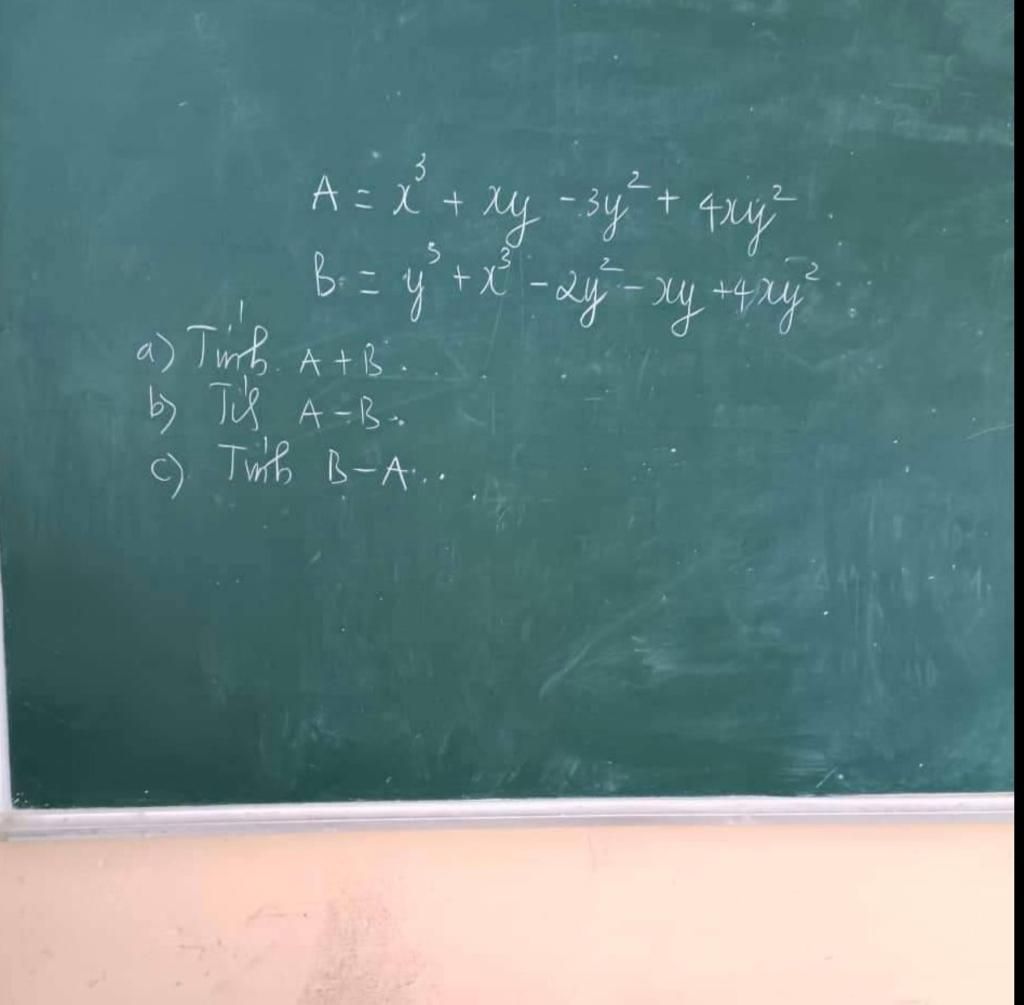 A = x³ + xy - 3y² + 4xy².
B = y³ + x³ - 2y² - xy + 4xy²
a) Tính A + B.
b) Tí A - B.
c) Tính B - A.